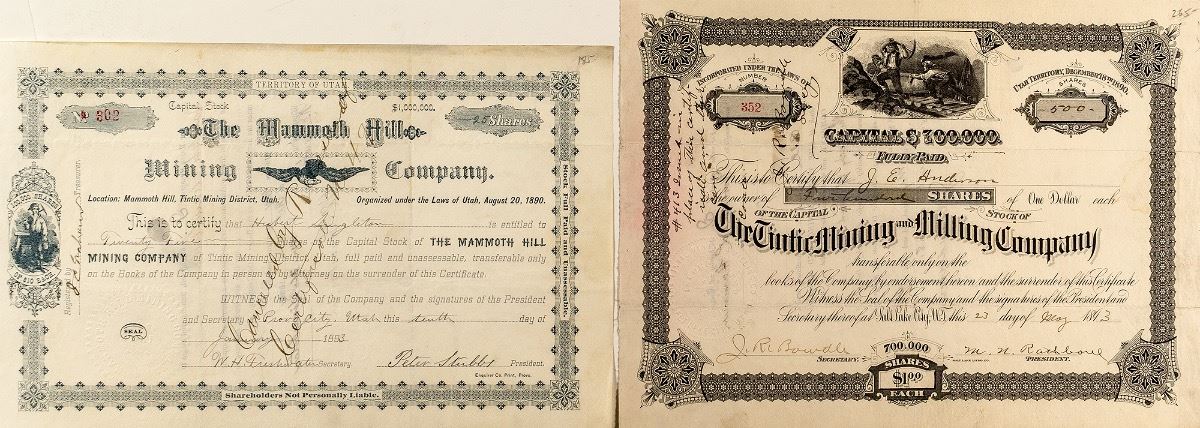 185-
TERRITORY OF UTAH
302
Capital Stock $1,000,000.
25 Shares
The Mammoth Hill
Mining Company.
Location: Mammoth Hill, Tintic Mining District, Utah. Organized under the Laws of Utah, August 20, 1890.
This is to certify that Singleton is entitled to
Twenty Five Shares of the Capital Stock of THE MAMMOTH HILL
MINING COMPANY of Tintic Mining District, Utah, full paid and unassessable, transferable only
on the Books of the Company in person or by Attorney on the surrender of this Certificate.
WITNESS the Seal of the Company and the signatures of the President
and Secretary Provo City, Utah this tenth day of
1893
SEAL
Secretary Peter Stubbs President.
Enquirer Co. Print, Provo.
Shareholders Not Personally Liable.
Stock Full Paid and Unassessable.
Treasurer.
Cancelled by
265-
INCORPORATED UNDER THE LAWS OF
UTAH TERRITORY, DECEMBER 1890.
NUMBER
352
SHARES
500
CAPITAL $700,000.
FULLY PAID.
This is to Certify that J. E. Anderson
is the owner of Five hundred SHARES of One Dollar each
OF THE CAPITAL STOCK OF
The Tintic Mining and Milling Company
transferable only on the
books of the Company by endorsement hereon and the surrender of this Certificate
Witness the Seal of the Company and the signatures of the President and
Secretary thereof at Salt Lake City, U.T. this 23 day of May 1893
J. R. Bowdle
SECRETARY.
M. N. Rathbone
PRESIDENT.
700,000
SHARES
$1.00
EACH